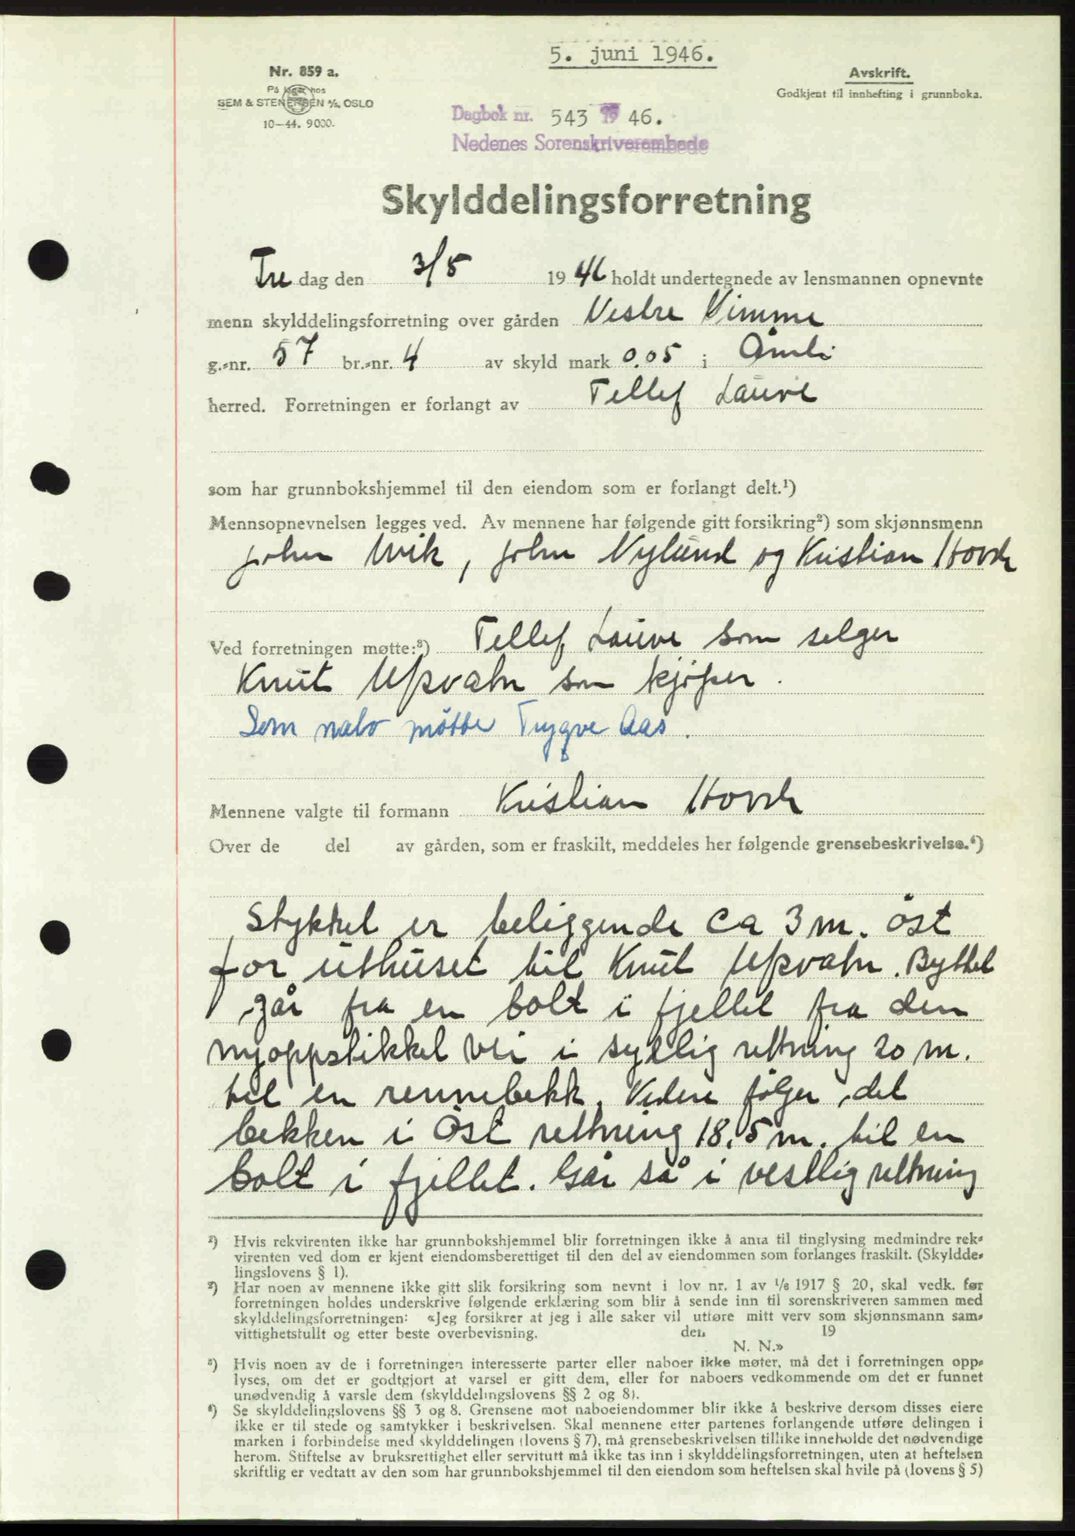 5. juni 1946.
Nr. 859 a.
På lager hos
SEM & STENERSEN A/S, OSLO
10-44. 9000.
Avskrift.
Godkjent til innhefting i grunnboka.
Dagbok nr. 543 19 46.
Nedenes Sorenskriverembede
Skylddelingsforretning
Tre dag den 3/5 19 46 holdt undertegnede av lensmannen opnevnte
menn skylddelingsforretning over gården Vestre Vimme
g.-nr. 57 br.-nr. 4 av skyld mark 0.05 i Åmli
herred. Forretningen er forlangt av Tellef Lauve
som har grunnbokshjemmel til den eiendom som er forlangt delt.¹)
Mennsopnevnelsen legges ved. Av mennene har følgende gitt forsikring²) som skjønnsmenn
John Wik, John Nylund og Kristian Hovde
Ved forretningen møtte:³) Tellef Lauve som selger
Knut Upvatn som kjøper.
Som nabo møtte Trygve Aas.
Mennene valgte til formann Kristian Hovde
Over de del av gården, som er fraskilt, meddeles her følgende grensebeskrivelse.⁴)
Stykket er beliggende ca 3 m. øst
for uthuset til Knut Upvatn. Byttet
går fra en bolt i fjellet fra den
nyoppstikket vei i sydlig rettning 20 m.
til en rennebekk. Videre følger det
bekken i Øst rettning 18,5 m. til en
bolt i fjellet. Går så i vestlig rettning
¹) Hvis rekvirenten ikke har grunnbokshjemmel blir forretningen ikke å anta til tinglysing medmindre rek-
virenten ved dom er kjent eiendomsberettiget til den del av eiendommen som forlanges fraskilt. (Skyldde-
lingslovens § 1).
²) Har noen av mennene ikke gitt slik forsikring som nevnt i lov nr. 1 av 1/6 1917 § 20, skal vedk. før
forretningen holdes underskrive følgende erklæring som blir å sende inn til sorenskriveren sammen med
skylddelingsforretningen: «Jeg forsikrer at jeg i alle saker vil utføre mitt verv som skjønnsmann sam-
vittighetsfullt og etter beste overbevisning. den 19
N. N.»
³) Hvis noen av de i forretningen interesserte parter eller naboer ikke møter, må det i forretningen opp-
lyses, om det er godtgjort at varsel er gitt dem, eller for naboers vedkommende om det er funnet
unødvendig å varsle dem (skylddelingslovens §§ 2 og 8).
⁴) Se skylddelingslovens §§ 3 og 8. Grensene mot naboeiendommer blir ikke å beskrive dersom disses eiere
ikke er til stede og samtykker i beskrivelsen. Skal mennene etter partenes forlangende utføre delingen i
marken i forbindelse med skylddelingen (lovens § 7), må grensebeskrivelsen tillike inneholde det nødvendige
herom. Stiftelse av bruksrettighet eller servitutt må ikke tas inn i skylddelingsforretningen, uten at heftelsen
skriftlig er vedtatt av den som har grunnbokshjemmel til den eiendom som heftelsen skal hvile på (lovens § 5)